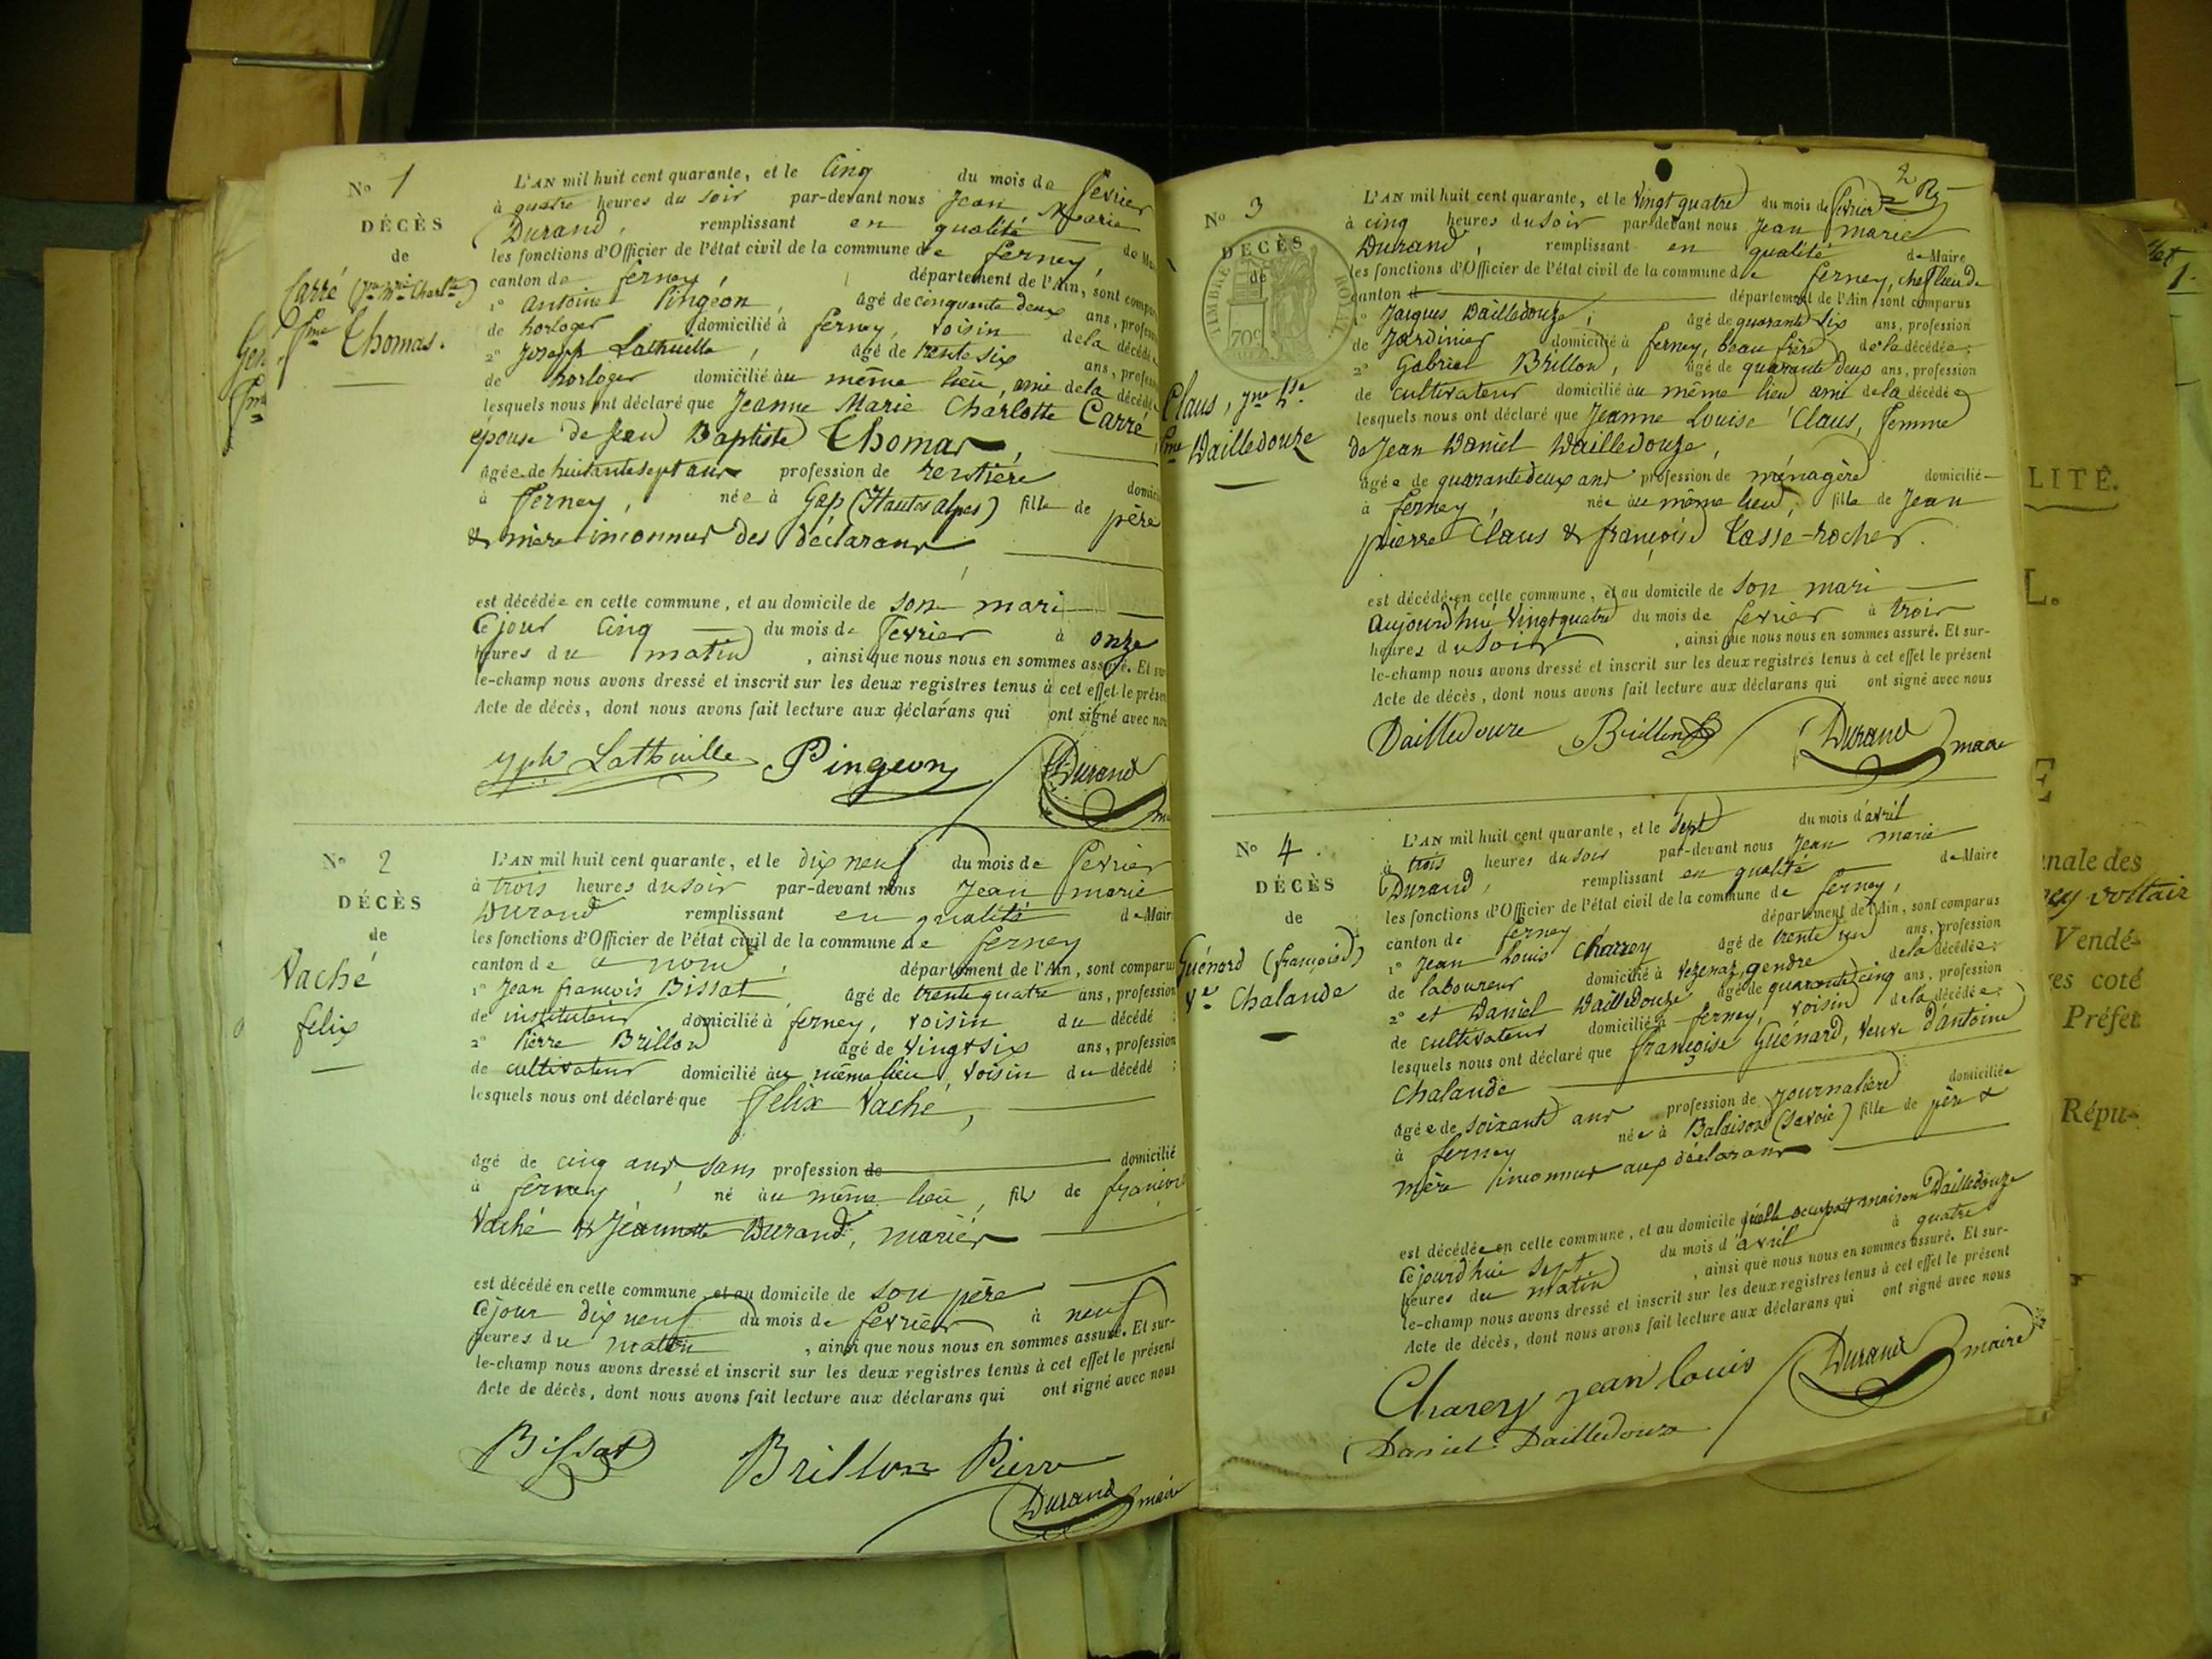 No 1
DÉCÈS
de
Carré (Jne Mie Charltte)
fme Thomas.
L'AN mil huit cent quarante, et le Cinq du mois de fevrier
à quatre heures du soir par-devant nous Jean Marie
Durand, remplissant en qualité de
les fonctions d'Officier de l'état civil de la commune de ferney,
canton de ferney, département de l'Ain, sont
1° antoine Pingeon, âgé de cinquante deux ans,
de horloger domicilié à ferney, voisin de la décédée
2° Joseph Lathuille, âgé de trente six ans,
de horloger domicilié au même lieu, ami de la décédée
lesquels nous ont déclaré que Jeanne Marie Charlotte Carré
epouse de Jean Baptiste Thomas,
âgée de huitante sept ans profession de rentière
à Ferney, née à Gap (Hautes alpes) fille de père
& mère inconnus des déclarans
est décédée en cette commune, et au domicile de son mari
Ce jour Cinq du mois de fevrier à onze
heures du matin, ainsi que nous nous en sommes assuré. Et
le-champ nous avons dressé et inscrit sur les deux registres tenus à cet effet le
Acte de décès, dont nous avons fait lecture aux déclarans qui ont signé avec
Lathuille Pingeon Durand
No 2
DÉCÈS
de
Vaché
felix
L'AN mil huit cent quarante, et le dix neuf du mois de fevrier
à trois heures du soir par-devant nous Jean marie
Durand remplissant en qualité de Maire
les fonctions d'Officier de l'état civil de la commune de ferney
canton de ce nom, département de l'Ain, sont comparus
1° Jean françois Bissat, âgé de trente quatre ans, profession
de instituteur domicilié à ferney, voisin du décédé;
2° Pierre Brillon âgé de vingt six ans, profession
de cultivateur domicilié au même lieu, voisin du décédé;
lesquels nous ont déclaré que Felix Vaché,
âgé de cinq ans, sans profession de domicilié
à ferney, né au même lieu, fils de françois
Vaché & Jeannette Durand, mariés
est décédé en cette commune, et au domicile de son père
Ce jour dix neuf du mois de fevrier à neuf
heures du matin, ainsi que nous nous en sommes assuré. Et sur-
le-champ nous avons dressé et inscrit sur les deux registres tenus à cet effet le présent
Acte de décès, dont nous avons fait lecture aux déclarans qui ont signé avec nous
Bissat Brillon Pierre
Durand maire
2
No 3
DÉCÈS
de
TIMBRE ROYAL
70c
Claus, Jne Lse
fme Dailledouze
L'AN mil huit cent quarante, et le vingt quatre du mois de fevrier
à cinq heures du soir par-devant nous Jean marie
Durand, remplissant en qualité de Maire
les fonctions d'Officier de l'état civil de la commune de ferney, chef lieu de
canton d département de l'Ain, sont comparus
1° Jacques Dailledouze, âgé de quarante six ans, profession
de Jardinier domicilié à ferney, beau frère de la décédée;
2° Gabriel Brillon, âgé de quarante deux ans, profession
de cultivateur domicilié au même lieu ami de la décédée
lesquels nous ont déclaré que Jeanne Louise Claus, femme
de Jean Daniel Dailledouze,
âgée de quarante deux ans profession de ménagère domicilié
à ferney, née au même lieu, fille de Jean
pierre Claus & françoise Tasse-rocher.
est décédée en cette commune, et au domicile de son mari
aujourd'hui vingt quatre du mois de fevrier à trois
heures du soir, ainsi que nous nous en sommes assuré. Et sur-
le-champ nous avons dressé et inscrit sur les deux registres tenus à cet effet le présent
Acte de décès, dont nous avons fait lecture aux déclarans qui ont signé avec nous
Dailledouze Brillon Durand maire
No 4.
DÉCÈS
de
Guénard (françoise)
Ve Chalande
L'AN mil huit cent quarante, et le sept du mois d'avril
à trois heures du soir par-devant nous Jean marie
Durand, remplissant en qualité de Maire
les fonctions d'Officier de l'état civil de la commune de ferney,
canton de ferney département de l'Ain, sont comparus
1° Jean Louis Charrey âgé de trente un ans, profession
de laboureur domicilié à Vezenaz, gendre de la décédée;
2° et Daniel Dailledouze âgé de quarante cinq ans, profession
de cultivateur domicilié à ferney, voisin de la décédée;
lesquels nous ont déclaré que françoise Guénard, veuve d'antoine
Chalande
âgée de soixante ans profession de journalière domiciliée
à ferney née à Balaison (Savoie) fille de père &
mère inconnus aux déclarans
est décédée en cette commune, et au domicile qu'elle occupait maison Dailledouze
Cejourd'hui sept du mois d'avril à quatre
heures du matin, ainsi que nous nous en sommes assuré. Et sur-
le-champ nous avons dressé et inscrit sur les deux registres tenus à cet effet le présent
Acte de décès, dont nous avons fait lecture aux déclarans qui ont signé avec nous
Charey jean louis Durand maire
Daniel Dailledouze
LITÉ.
L.
E
nale des
voltair
Vendé-
res coté
Préfet
Répu-